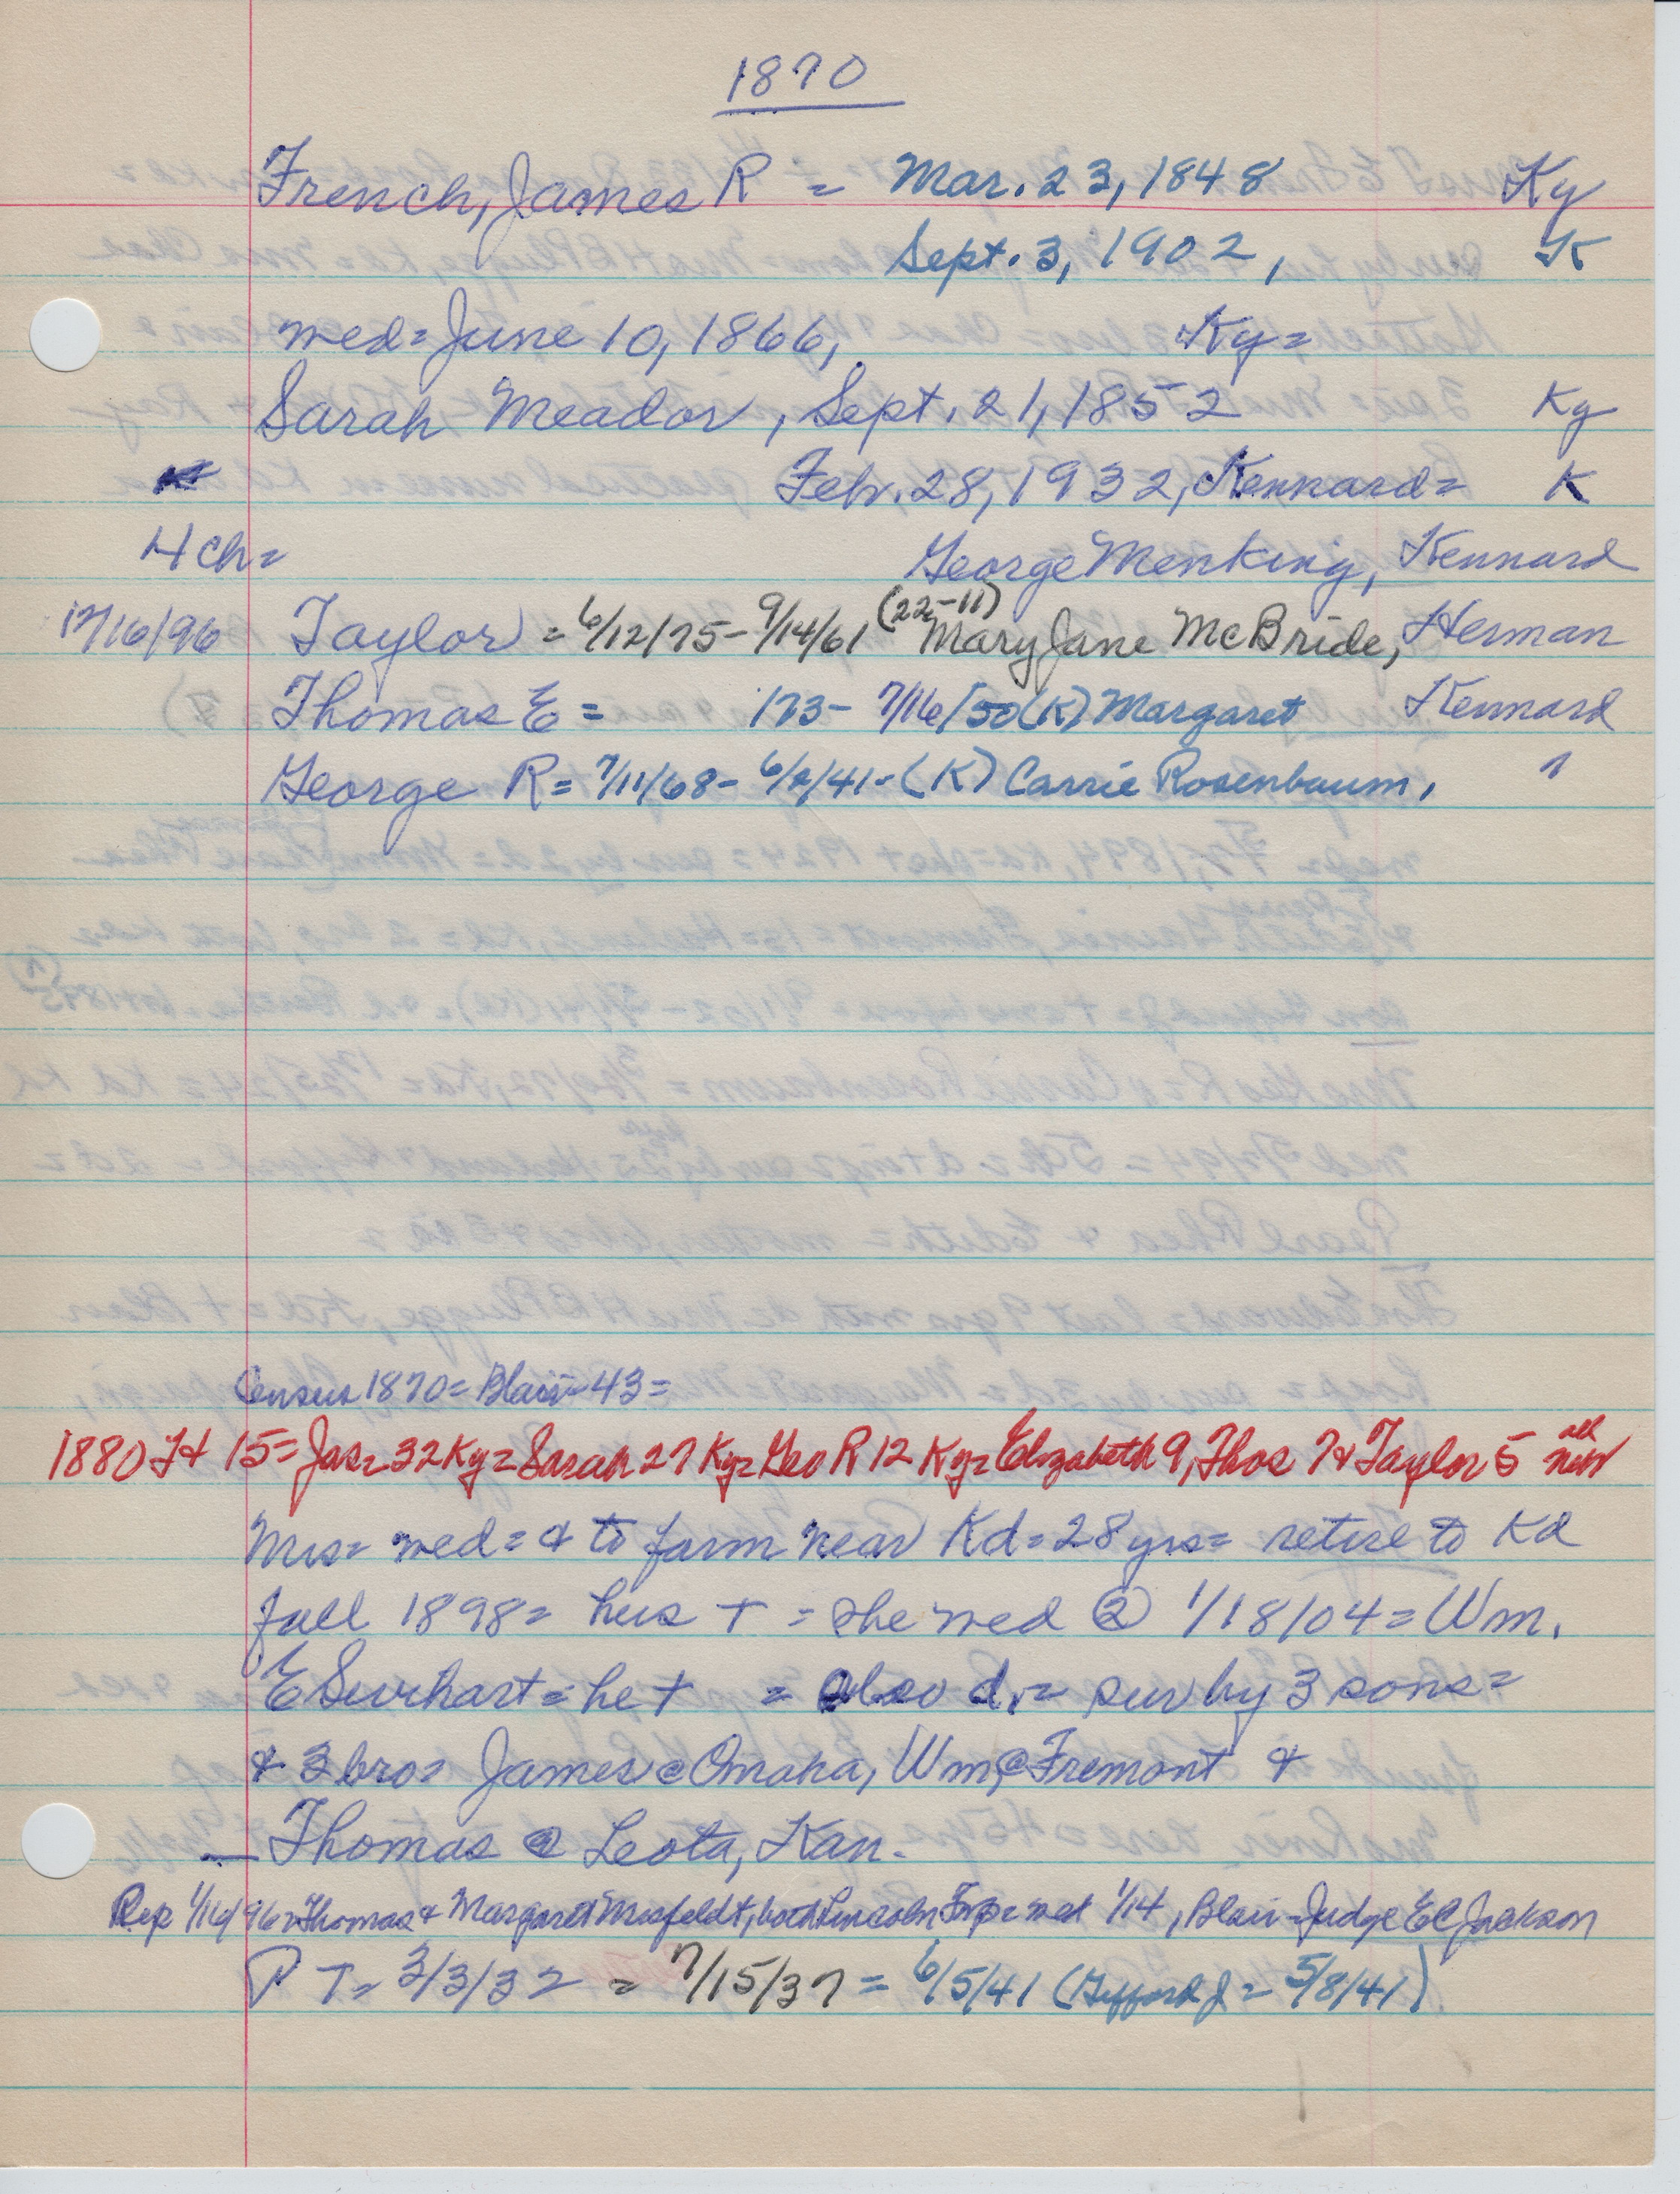 1870
French, James R = Mar. 23, 1848 Ky
Sept. 3, 1902, K
wed = June 10, 1866, Ky =
Sarah Meador, Sept. 21, 1852 Ky
Feb. 28, 1932, Kennard = K
4 ch = George Menking, Kennard
12/16/96 Taylor = 6/12/75 - 9/14/61 (22-11) Mary Jane McBride, Herman
Thomas E = '73 - 7/16/50 (K) Margaret Kennard
George R = 7/11/68 - 6/2/41 - (K) Carrie Rosenbaum, "
Census 1870 = Blair - 43 =
1880 Ft 15 = Jas = 32 Ky = Sarah 27 Ky = Geo R 12 Ky = Elizabeth 9, Thos 7 & Taylor 5 all Neb
Mrs = wed = & to farm near Kd = 28 yrs = retire to Kd
fall 1898 = hus + = she wed @ 1/18/04 = Wm.
E = he + = also d. = sur by 3 sons =
& 3 bro = James @ Omaha, Wm, @ Fremont &
Thomas @ Leota, Kan.
Rep 1/16/96 = Thomas & Margaret Misfeldt, both Lincoln Twp = wed 1/14, Blair - Judge E C Jackson
P T = 3/3/32 = 7/15/37 = 6/5/41 (Gifford J = 5/8/41)